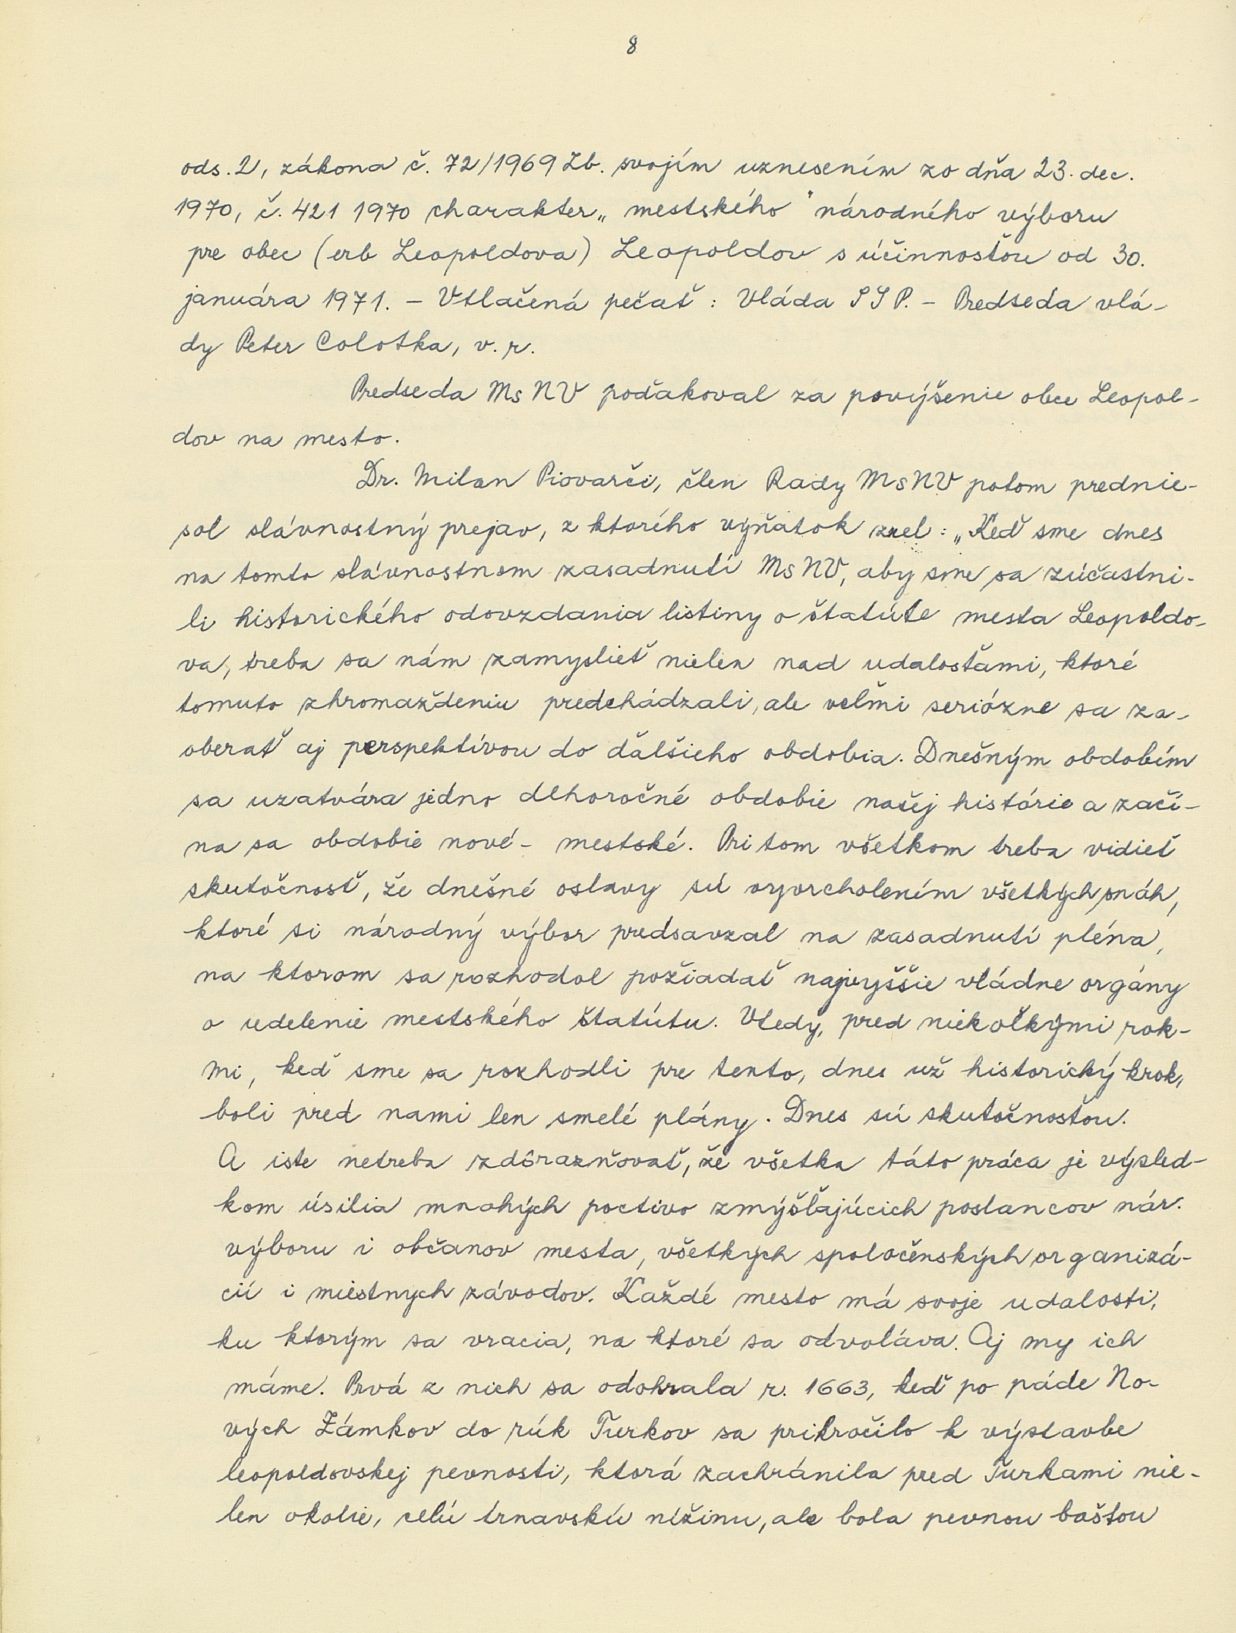 8
ods. 2, zákona č. 72/1969 Zb. svojím uznesením zo dňa 23. dec.
1970, č. 421 1970 charakter „ mestského " národného výboru
pre obec (erb Leopoldova) Leopoldov s účinnosťou od 30.
januára 1971. – Vtlačená pečať : Vláda SSR. – Predseda vlá-
dy Peter Colotka, v. r.
Predseda MsNV poďakoval za povýšenie obce Leopol-
dov na mesto.
Dr. Milan Piovarči, člen Rady MsNV potom prednie-
sol slávnostný prejav, z ktorého výňatok znel : „Keď sme dnes
na tomto slávnostnom zasadnutí MsNV, aby sme sa zúčastni-
li historického odovzdania listiny o štatúte mesta Leopoldo-
va, treba sa nám zamyslieť nielen nad udalosťami, ktoré
tomuto zhromaždeniu predchádzali, ale veľmi seriózne sa za-
oberať aj perspektívou do ďalšieho obdobia. Dnešným obdobím
sa uzatvára jedno dlhoročné obdobie našej histórie a začí-
na sa obdobie nové – mestské. Pri tom všetkom treba vidieť
skutočnosť, že dnešné oslavy sú vyvrcholením všetkých snáh,
ktoré si národný výbor predsavzal na zasadnutí pléna,
na ktorom sa rozhodol požiadať najvyššie vládne orgány
o udelenie mestského štatútu. Vtedy, pred niekoľkými rok-
mi, keď sme sa rozhodli pre tento, dnes už historický krok,
boli pred nami len smelé plány. Dnes sú skutočnosťou.
A iste netreba zdôrazňovať, že všetka táto práca je výsled-
kom úsilia mnohých poctivo zmýšľajúcich poslancov nár.
výboru i občanov mesta, všetkých spoločenských organizá-
cií i miestnych závodov. Každé mesto má svoje udalosti,
ku ktorým sa vracia, na ktoré sa odvoláva. Aj my ich
máme. Prvá z nich sa odohrala r. 1663, keď po páde No-
vých Zámkov do rúk Turkov sa prikročilo k výstavbe
leopoldovskej pevnosti, ktorá zachránila pred Turkami nie-
len okolie, celú trnavskú nížinu, ale bola pevnou baštou